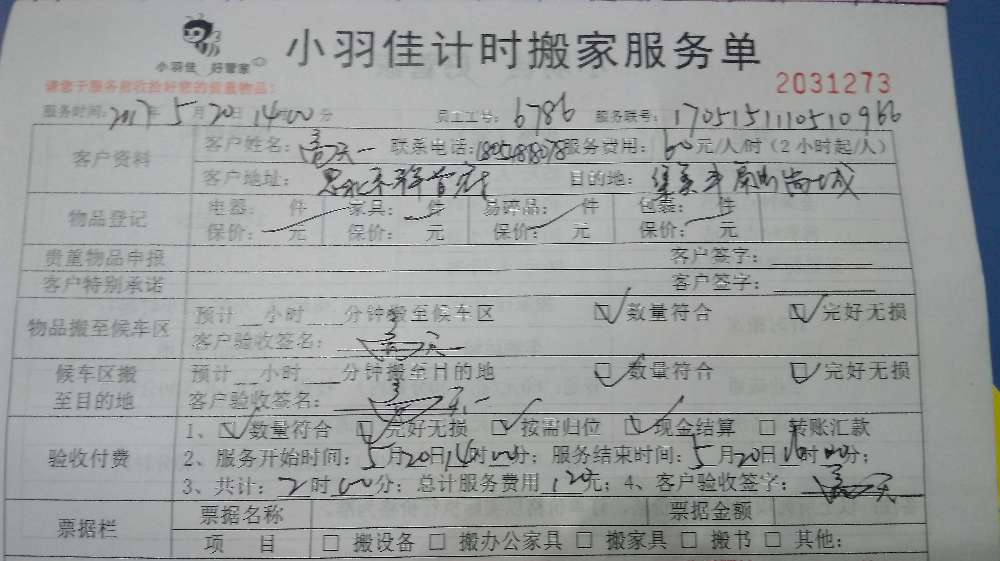 小羽佳 好管家
小羽佳计时搬家服务单
请您于服务前收拾好您的贵重物品!
2031273
服务时间: 2017年 5 月 20 日 14时00分 员工工号: 6786 服务联号: 1705151110510966
客户资料
客户姓名: 联系电话: 服务费用: 60 元/人/时 (2小时起/人)
客户地址: 目的地:
物品登记
电器: 件 家具: 件 易碎品: 件 包裹: 件
保价: 元 保价: 元 保价: 元 保价: 元
贵重物品申报 客户签字:
客户特别承诺 客户签字:
物品搬至候车区
预计 小时 分钟搬至候车区 ☑数量符合 ☑完好无损
客户验收签名:
候车区搬至目的地
预计 小时 分钟搬至目的地 ☑数量符合 ☑完好无损
客户验收签名:
验收付费
1、☑数量符合 ☑完好无损 ☑按需归位 ☑现金结算 □转账汇款
2、服务开始时间: 5月20日14时00分; 服务结束时间: 5月20日16时00分;
3、共计: 2时00分; 总计服务费用 120元; 4、客户验收签字:
票据栏
票据名称 票据金额
项 目 □搬设备 □搬办公家具 □搬家具 □搬书 □其他: